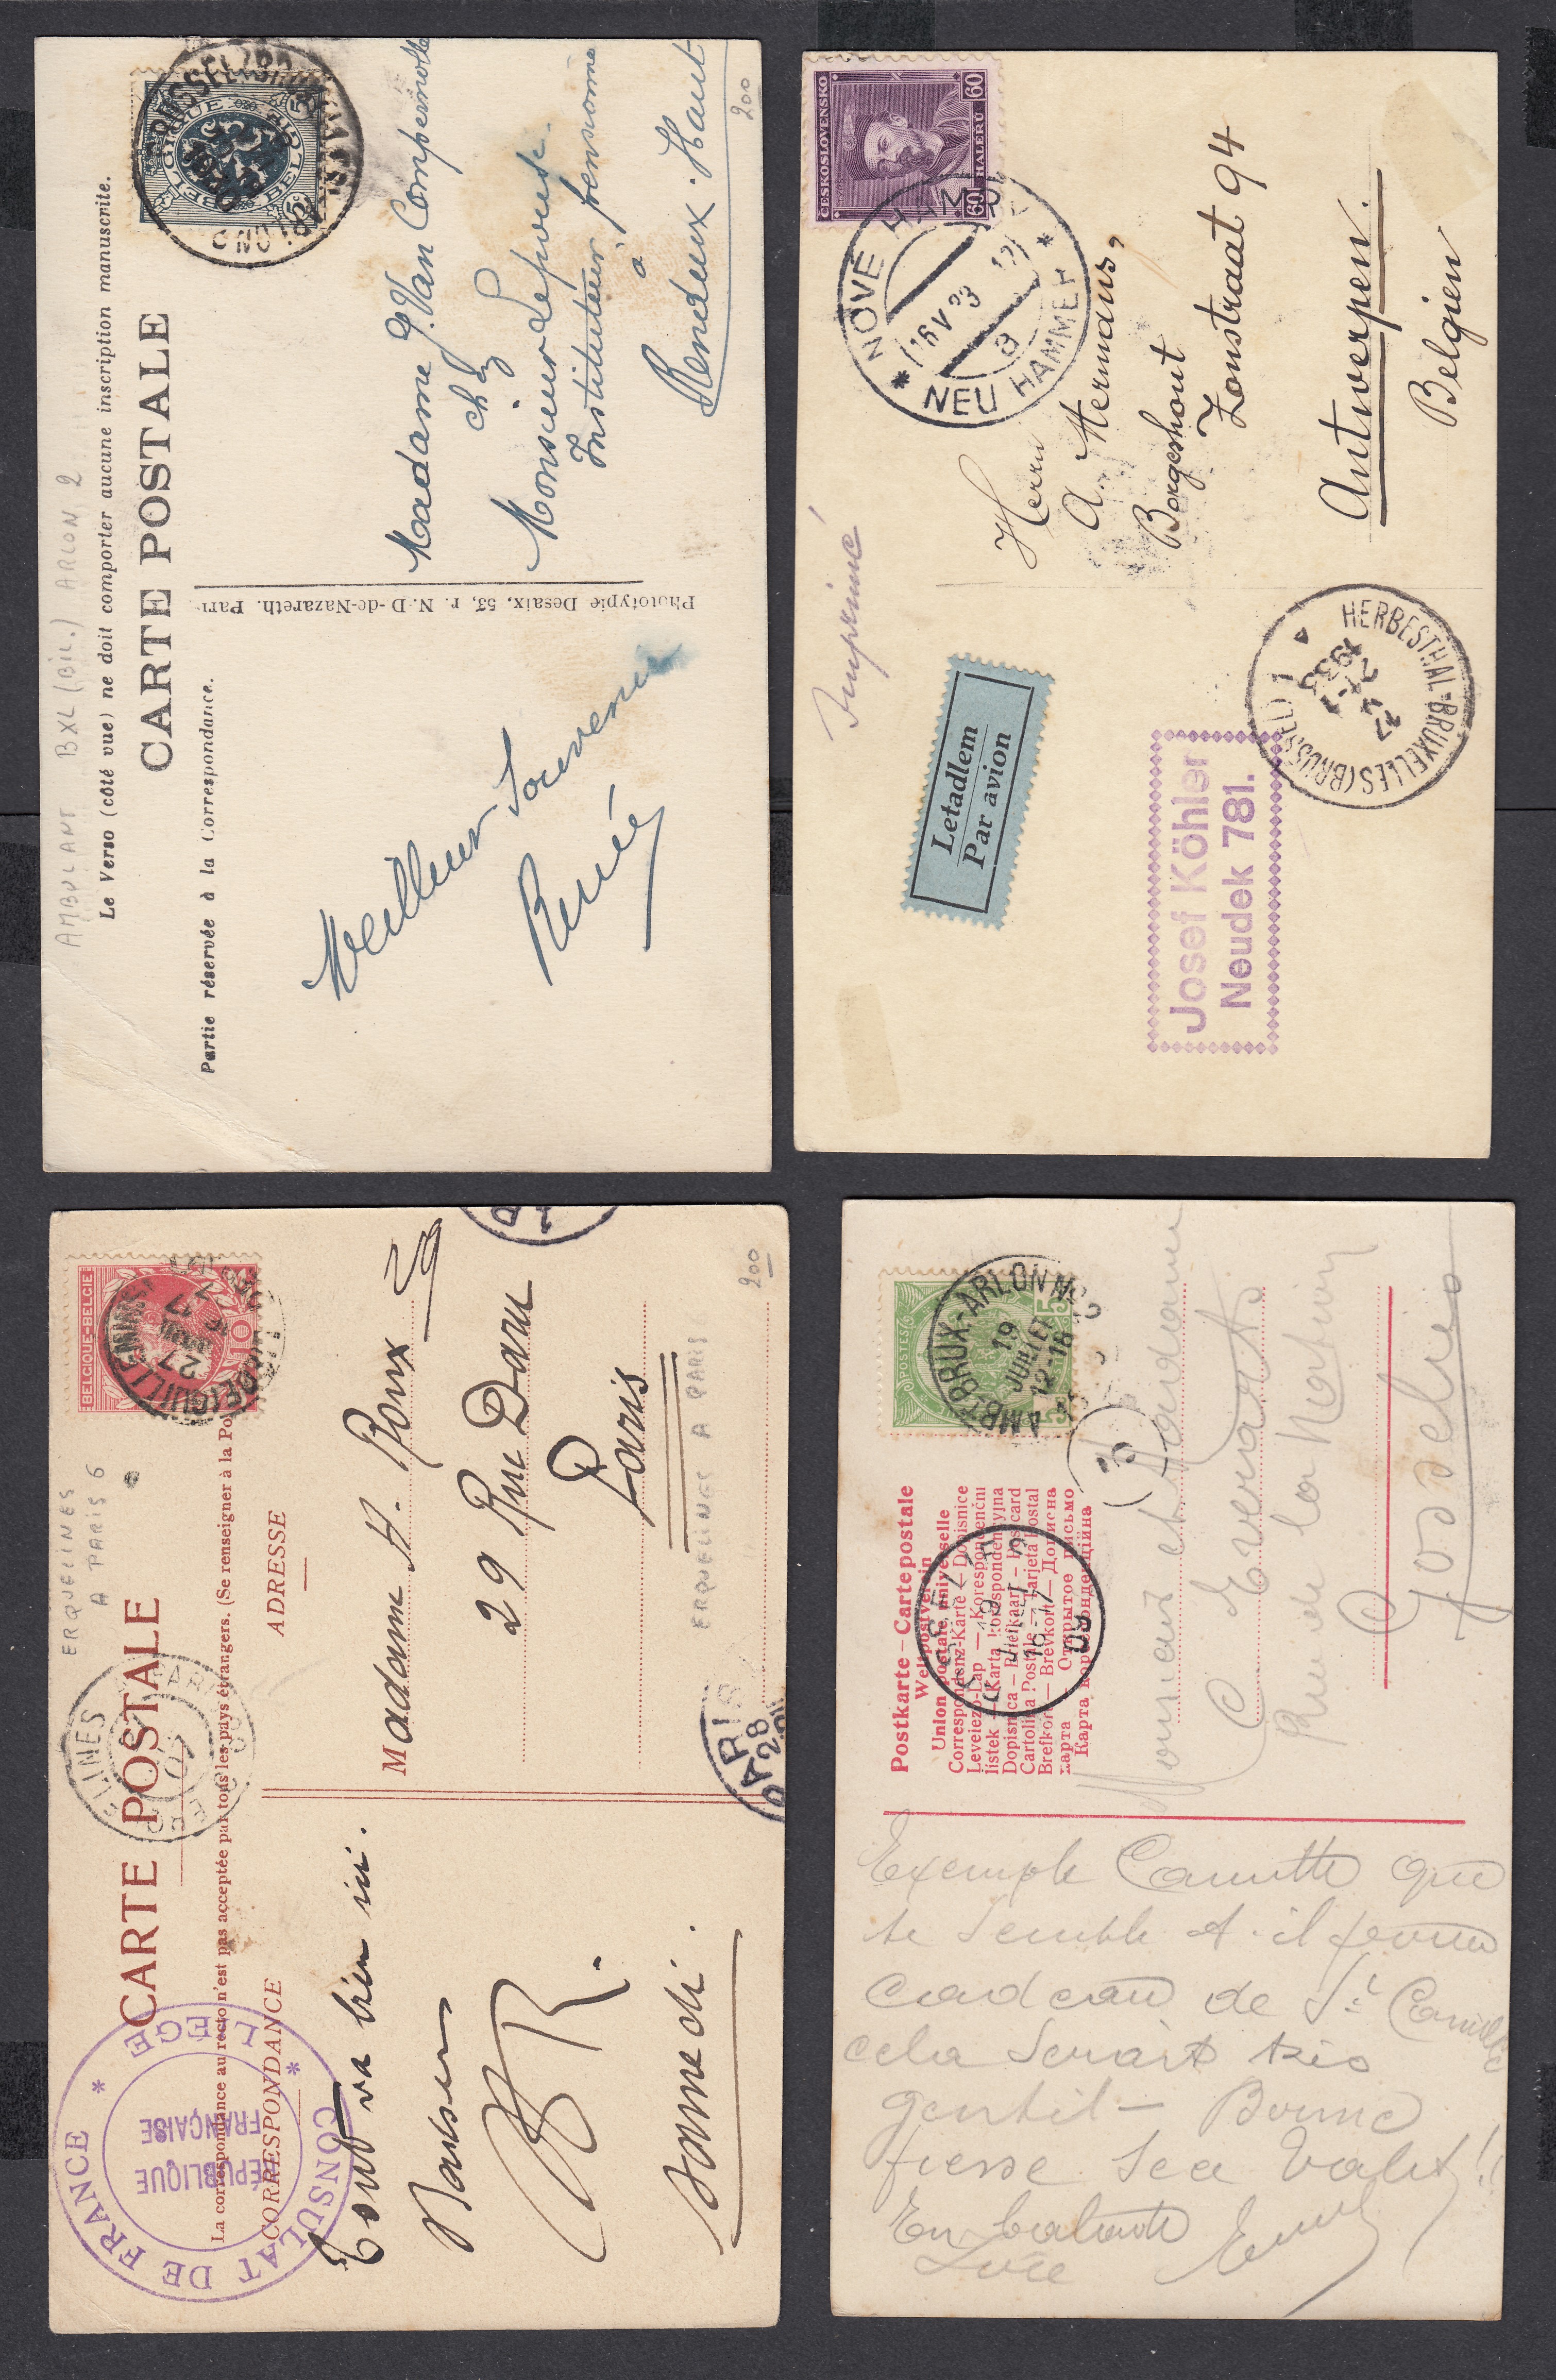 AMBULANT BXL (BIL.) ARLON 2
Le Verso (côté vue) ne doit comporter aucune inscription manuscrite.
CARTE POSTALE
Partie réservée à la Correspondance.
Phototypie Desaix, 53, r. N.-D-de-Nazareth. Paris
BELGIQUE
BELGIË
ARLON
Madame J. Van Compernolle
chez
Monsieur Lepouse
Instituteur pensionné
à
Rendeux-Haut
200
Meilleur Souvenir
Renée
ČESKOSLOVENSKO
60 HALERŮ 60
NOVÉ HAMRY
16 V 33
a
NEU HAMMER
Imprimé
Herrn
A. Hermans,
Borgerhout
Zonstraat 94
Antwerpen.
Belgien
Letadlem
Par avion
HERBESTHAL-BRUXELLES (BRUSSEL) 1
1933
Josef Köhler
Neudek 781.
ERQUELINES
A PARIS 6
CARTE POSTALE
La correspondance au recto n'est pas acceptée par tous les pays étrangers. (Se renseigner à la Po
CORRESPONDANCE
ADRESSE
BELGIQUE-BELGIE
10
(GUILLEMINS)
27
CONSULAT DE FRANCE * LIÈGE *
RÉPUBLIQUE
FRANÇAISE
Madame H. Roux
29
29 Rue Daru
Paris
ERQUELINES A PARIS 6
200
PARIS
28
Tout va bien ici.
Baisers
R.
Samedi.
POSTES
5 5
AMBT BRUX-ARLON No 2
19
JUILLET
12-18
Postkarte – Carte postale
Weltpostverein
Union postale universelle
Correspondenz-Karte – Dopisnice
Levelező-Lap – Korespondenční
lístek – Karta korespondencyjna
Dopisnica – Briefkaart – Post card
Cartolina Postale – Tarjeta Postal
Brefkort – Brevkort – Дописна
карта – Открытое письмо
Карта кореспонденційна
19
JUILLET
16-17
09
Monsieur et Madame
C Everarts
Rue de la Station
Jodelies
Exemple Camille que
te semble t-il ferme
cadeau de St Camille
cela serait très
gentil – Bonne
Emile